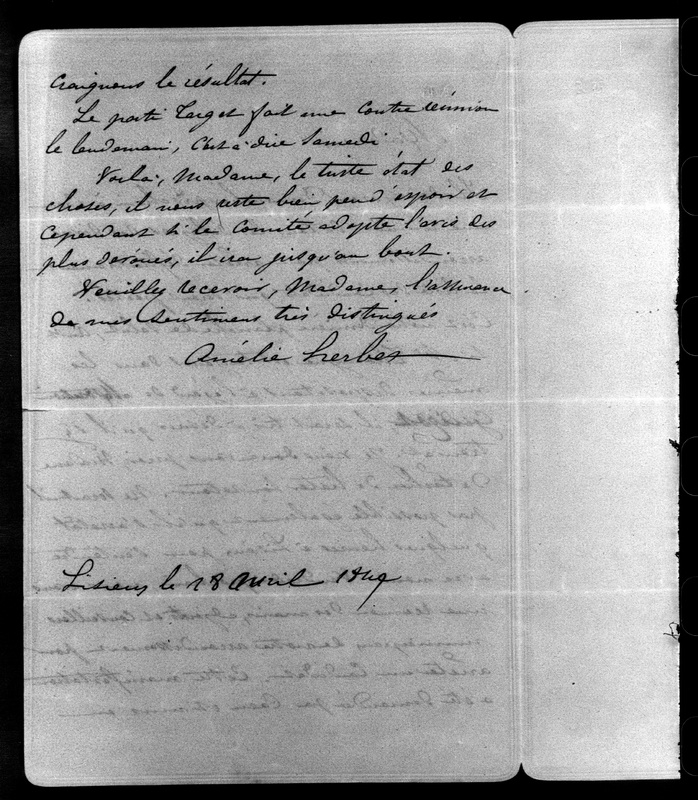 craignons le résultat.
Le parti Target fait une contre réunion
le lendemain, c'est à dire Samedi
Voilà, Madame, le triste état des
choses, il nous reste bien peu d'espoir et
cependant si le Comité adopte l'avis des
plus dévoués, il ira jusqu'au bout.
Veuillez recevoir, Madame, l'assurance
de mes sentimens très distingués
Amélie
Lisieux le 18 avril 1849